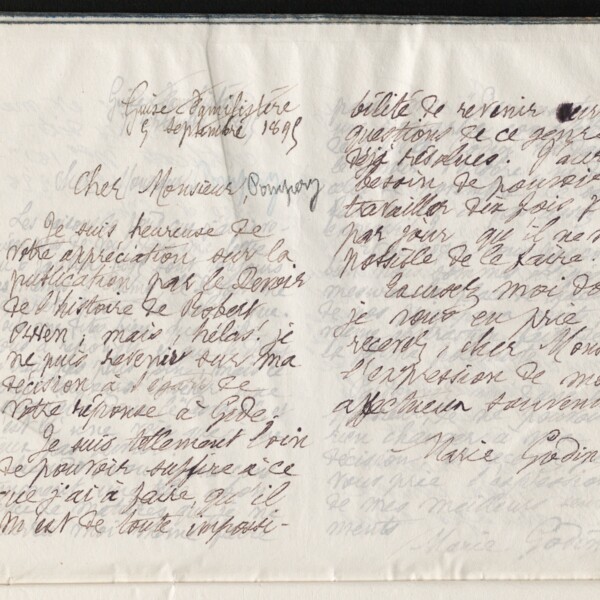 Guise Familistère
5 septembre 1895
Cher Monsieur, Pompery
Je suis heureuse de
votre appréciation sur la
publication par le Devoir
de l'histoire de Robert
Owen; mais, hélas! je
ne puis revenir sur ma
décision à l'égard de
votre réponse à Gide.
Je suis tellement loin
de pouvoir suffire à ce
que j'ai à faire qu'il
m'est de toute impossi-
bilité de revenir sur
questions de ce genre
déjà résolues. J'aur
besoin de pouvoir
travailler dix fois
par jour qu'il ne
possible de le faire.
Excusez moi do
je vous en prie
recevez, cher Mons
l'expression de
affectueux souveni
Marie Godin